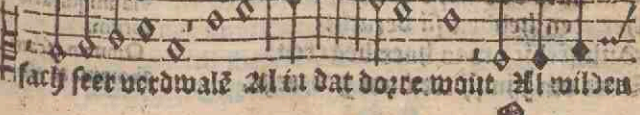 sach seer verdwalē Al in dat dorre wout Al wilden